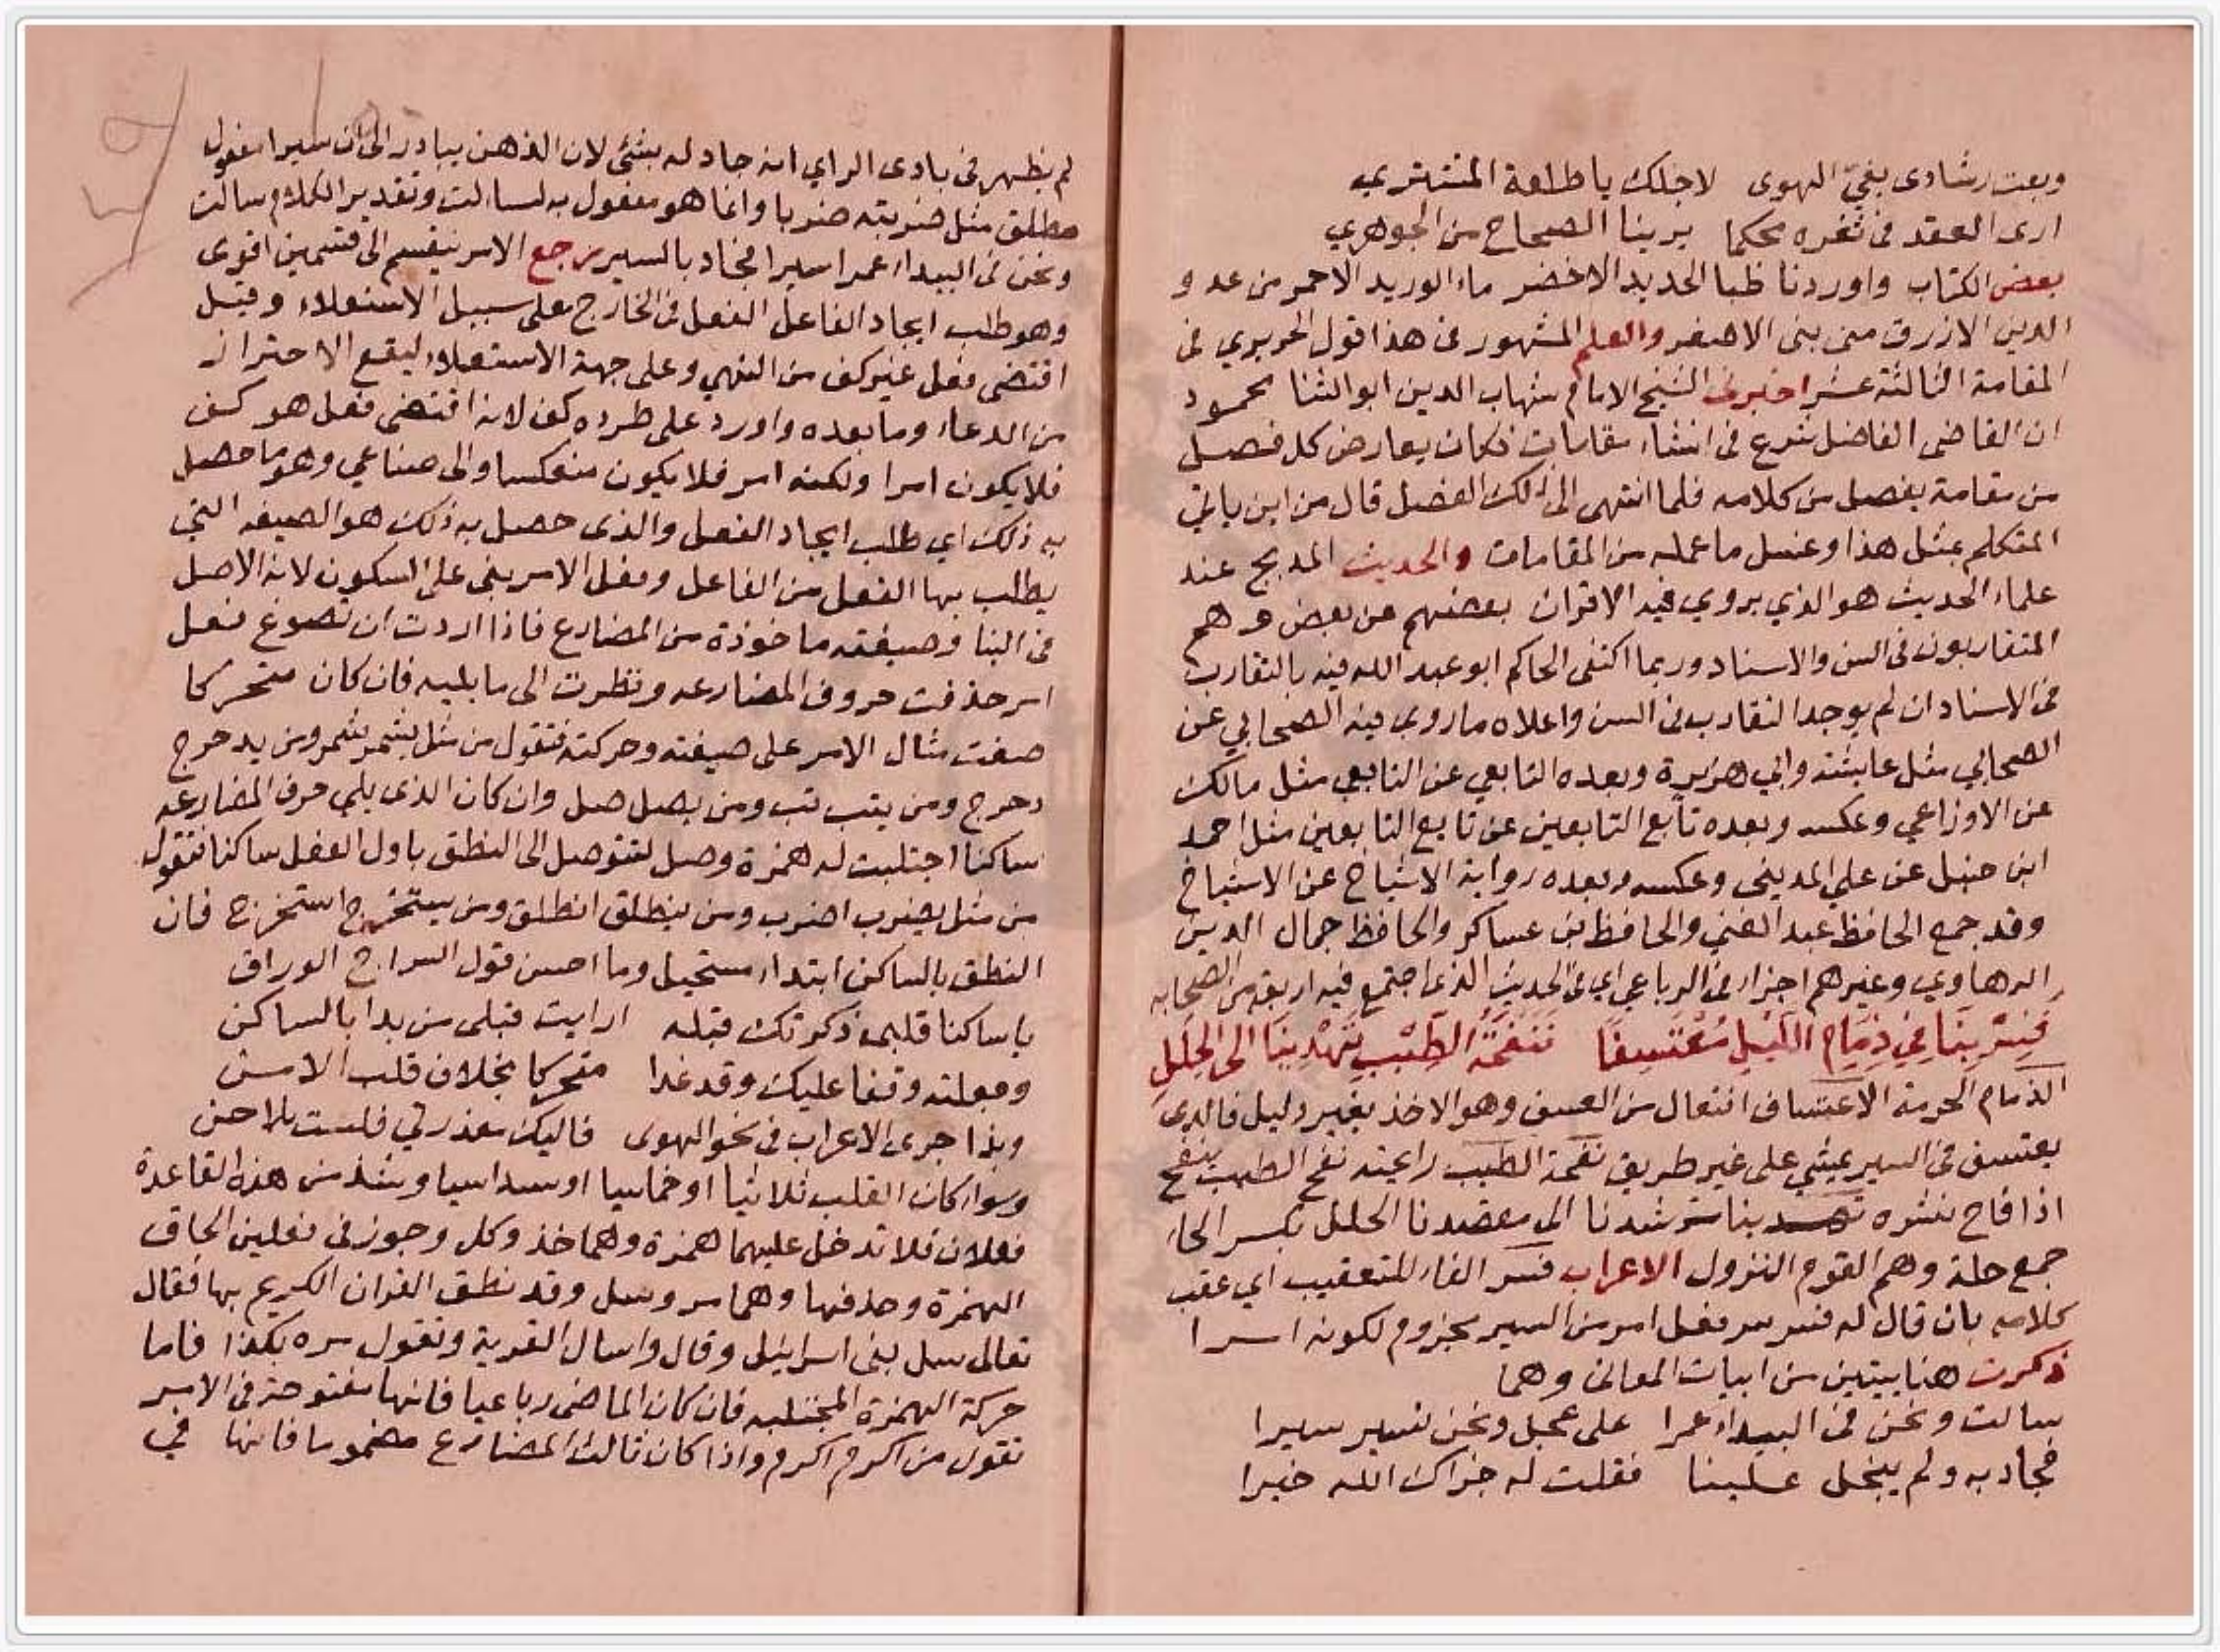 وبعت رشادى بغيّ الهوى لاجلك يا طلعة المشترى
ارى العقد فى ثغره محكما يرينا الصحاح من الجوهري
بعض الكتاب واوردنا ظبا الحديد الاخضر ماء الوريد الاحمر من عدو
الدين الازرق من بنى الاصفر والعلم المشهور فى هذا قول الحريري فى
المقامة الثالثة عشر اخبرنى الشيخ الامام شهاب الدين ابو الثنا محمود
ان القاضى الفاضل شرع فى انشاء مقامات فكان يعارض كل فصل
من مقامة بفصل من كلامه فلما انتهى الى ذلك الفصل قال من اين ياتي
المتكلم بمثل هذا وغسل ما عمله من المقامات والحديث المدبج عند
علماء الحديث هو الذي يروي فيه الاقران بعضهم عن بعض وهم
المتقاربون فى السن والاسناد وربما اكتفى الحاكم ابو عبد الله فيه بالتقارب
فى الاسناد ان لم يوجد التقارب فى السن واعلاه ما روى فيه الصحابي عن
الصحابي مثل عايشه وابي هريرة وبعده التابعي عن التابعي مثل مالك
عن الاوزاعي وعكسه وبعده تابع التابعين عن تابع التابعين مثل احمد
ابن حنبل عن علي المدينى وعكسه وبعده رواية الاشياخ عن الاشياخ
وقد جمع الحافظ عبد الغني والحافظ بن عساكر والحافظ جمال الدين
الرهاوي وغيرهم اجزاء فى الرباعي اي فى الحديث الذى اجتمع فيه اربعة من الصحابه
فَسِرْ بِنَا فِي ذِمَامِ اللَّيْلِ مُعْتَسِفًا فَنَفْحَةُ الطِّيْبِ تَهْدِيْنَا الى الحِلَلِ
الذمام الحرمة الاعتساف افتعال من العسف وهو الاخذ بغير دليل فالذى
يعتسف فى السير يمشي على غير طريق نفحة الطيب رايحته نفح الطيب ينفح
اذا فاح نشره تهدينا ترشدنا الى مقصدنا الحلل بكسر الحاء
جمع حلة وهم القوم النزول الاعراب فسر الفاء للتعقيب اي عقب
كلامه بان قال له فسر سر فعل امر من السير مجزوم لكونه امرا
ذكرت هنا بيتين من ابيات المعانى وهما
سالت ونحن فى البيداء عمرا على عجل ونحن نسير سيرا
فجاد به ولم يبخل علينا فقلت له جزاك الله خيرا
لم يظهر فى بادى الراي انه جاد له بشئ لان الذهن يبادر الى ان سيرا مفعول
مطلق مثل ضربته ضربا وانما هو مفعول به لسالت وتقدير الكلام سالت
ونحن فى البيداء عمرا سيرا فجاد بالسير رجع الامر ينقسم الى قسمين اقوى
وهو طلب ايجاد الفاعل الفعل فى الخارج على سبيل الاستعلاء وقيل
اقتضى فعل غير كف من النهي وعلى جهة الاستعلاء ليقع الاحتراز
من الدعاء وما بعده واورد على طرده كف لانه اقتضى فعل هو كف
فلا يكون امرا ولكنه امر فلا يكون منعكسا والى صناعي وهو ما حصل
به ذلك اي طلب ايجاد الفعل والذى حصل به ذلك هو الصيغه التي
يطلب بها الفعل من الفاعل وفعل الامر بنى على السكون لانه الاصل
فى البنا وصيغته ماخوذة من المضارع فاذا اردت ان تصوغ فعل
امر حذفت حروف المضارعه ونظرت الى ما يليه فان كان متحركا
صغت مثال الامر على صيغته وحركته فتقول من مثل يشمر شمر ومن يدحرج
دحرج ومن يتب تب ومن يصل صل وان كان الذى يلي حرف المضارعه
ساكنا اجتلبت له همزة وصل لتتوصل الى النطق باول الفعل ساكنا فتقول
من مثل يضرب اضرب ومن ينطلق انطلق ومن يستخرج استخرج فان
النطق بالساكن ابتداء مستحيل وما احسن قول السراج الوراق
يا ساكنا قلبى ذكرتك قبله ارايت قبلى من بدا بالساكن
وجعلته وقفا عليك وقد غدا متحركا بخلاف قلب الامن
وبذا جرى الاعراب فى نحو الهوى فاليك معذرتي فلست بلاحن
وسوا كان القلب ثلاثيا او خماسيا او سداسيا وشذ من هذه القاعدة
فعلان فلا تدخل عليهما همزة وهما خذ وكل وجوز فى فعلين الحاق
الهمزة وحذفها وهما مر وسل وقد نطق القران الكريم بها فقال
تعالى سل بنى اسرائيل وقال واسال القرية وتقول مره بكذا فاما
حركة الهمزة المجتلبه فان كان الماضى رباعيا فانها مفتوحة فى الامر
تقول من اكرم اكرم واذا كان ثالث المضارع مضموما فانها في